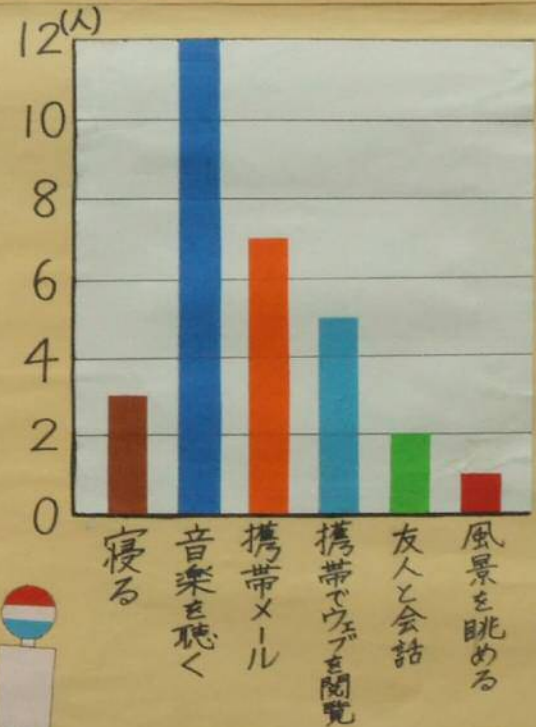 (人)
12
10
8
6
4
2
0
寝る
音楽を聴く
携帯メール
携帯でウェブを閲覧
友人と会話
風景を眺める